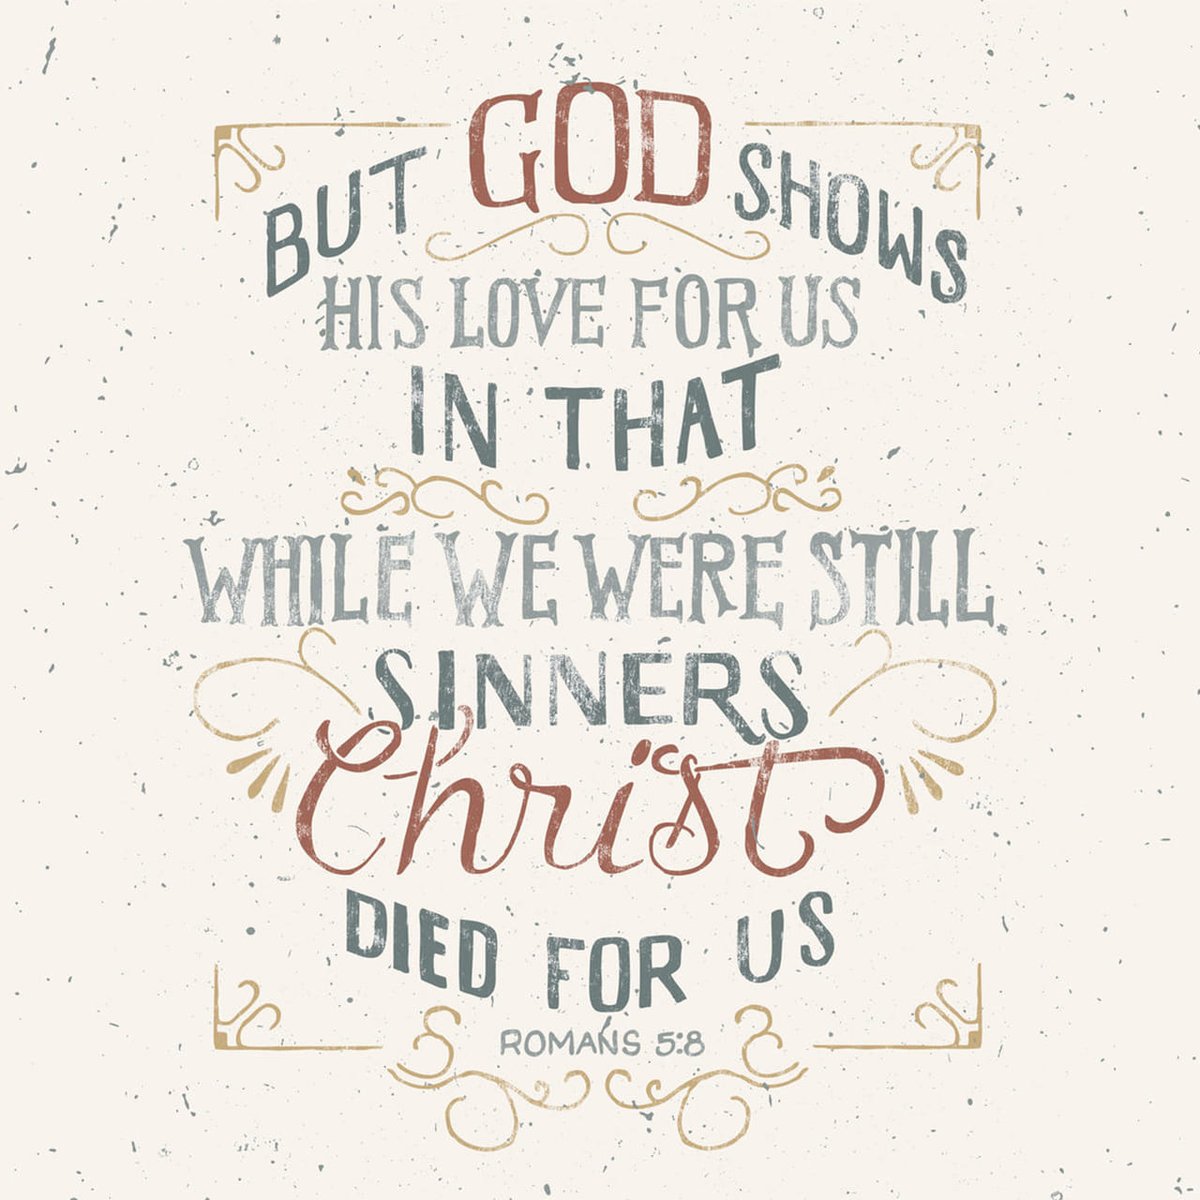 BUT GOD SHOWS
HIS LOVE FOR US
IN THAT
WHILE WE WERE STILL
SINNERS
Christ
DIED FOR US
ROMANS 5:8